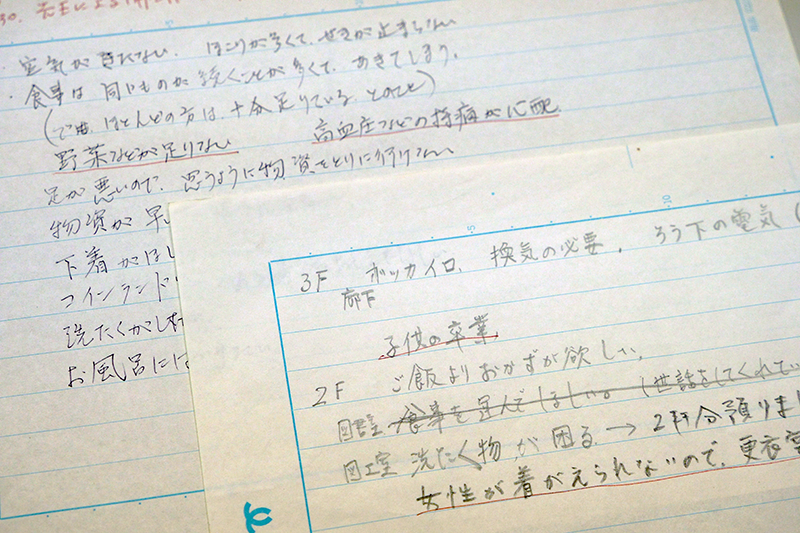 30.
・空気がきれない. ほこりが多くて、せきが止まらない
・食事は同じものが続くことが多くて、あきてしまう.
(では、ほとんどの方は、十分足りている とのこと)
野菜などが足りない 高血圧などの持病が心配
足が悪いので、思うように物資をとりに行けない
物資が早
下着がほし
コインランド
洗たくがし
お風呂には
3F ホッカイロ、換気の必要、ろう下の電気(
廊下
子供の卒業
2F ご飯よりおかずが欲しい.
図書室 食事を運んでほしい。(世話をしてくれてい
図工室 洗たく物が困る → 2軒分預りまし
女性が着がえられないので、更衣室